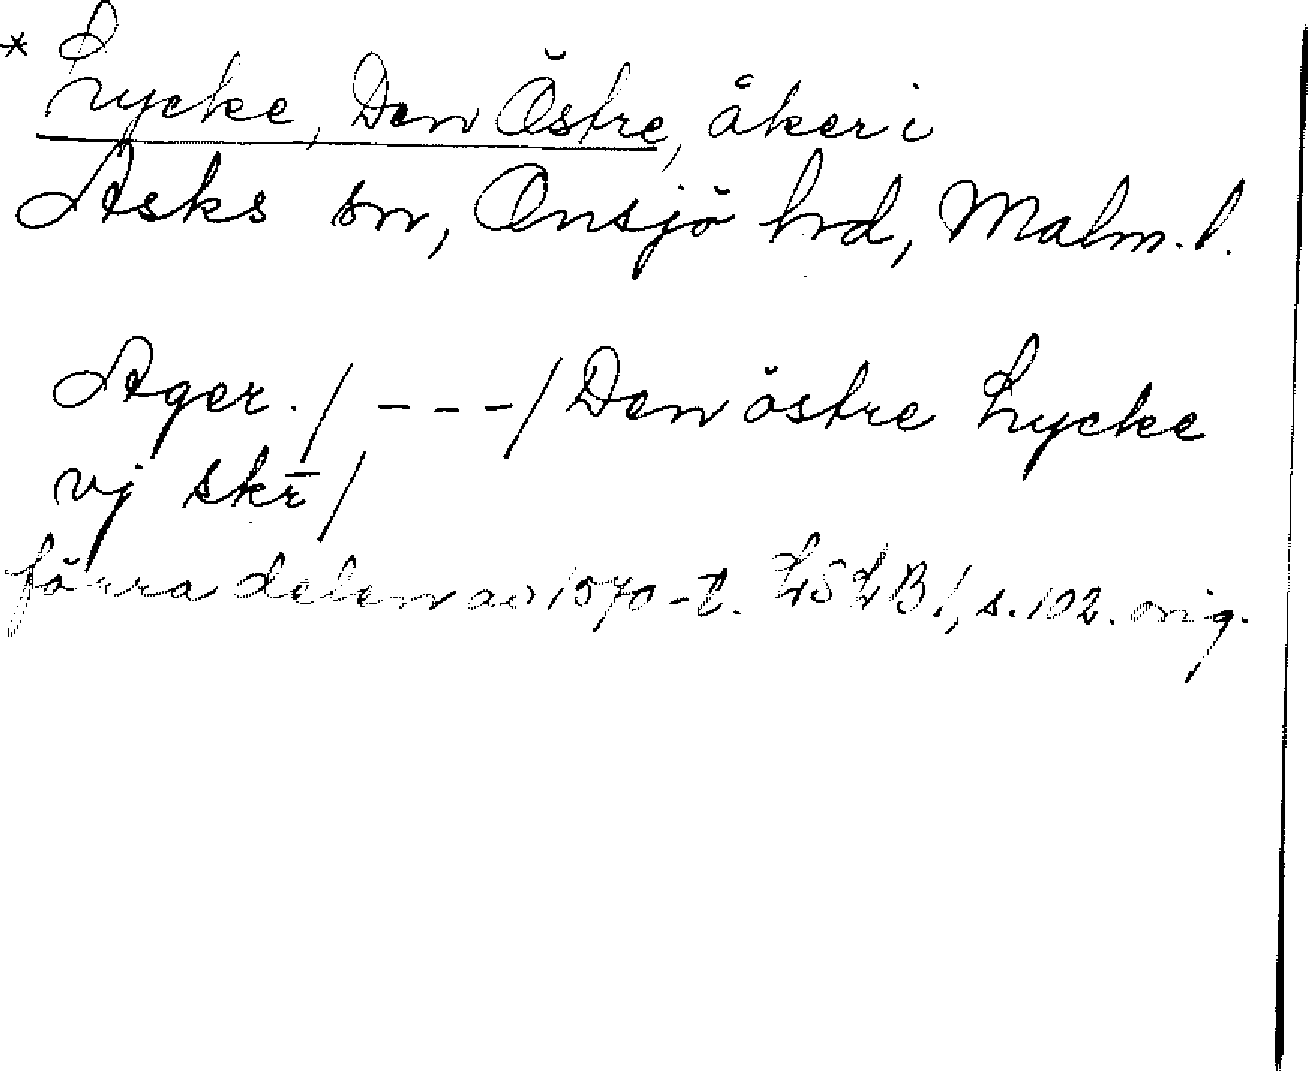 * Lycke, Den Östre, åker i
Asks sn, Onsjö hrd, Malm. l.
Ager. / - - - / Den östre Lycke
vj skr̄ /
förra delen av 1570-t. LSLB 1, s. 102. orig.